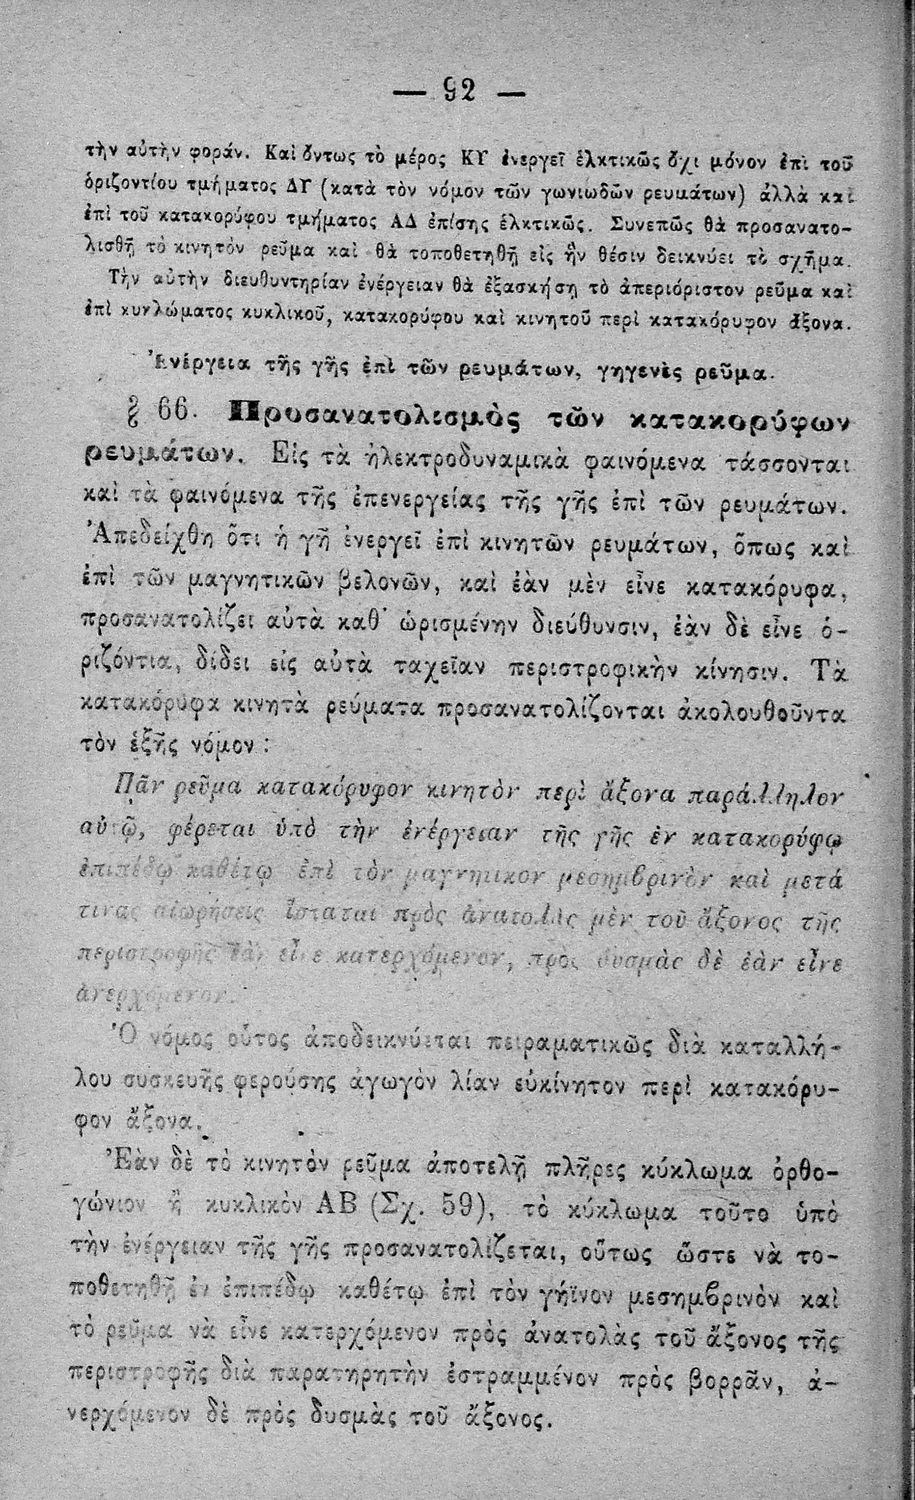 — 92 —
τὴν αὐτὴν φοράν. Καὶ ὄντως τὸ μέρος ΚΥ ἐνεργεῖ ἑλκτικῶς ὄχι μόνον ἐπὶ τοῦ
ὁριζοντίου τμήματος ΔΓ (κατὰ τὸν νόμον τῶν γωνιωδῶν ρευμάτων) ἀλλὰ καὶ
ἐπὶ τοῦ κατακορύφου τμήματος ΑΔ ἐπίσης ἑλκτικῶς. Συνεπῶς θὰ προσανατο-
λισθῇ τὸ κινητὸν ρεῦμα καὶ θὰ τοποθετηθῇ εἰς ἣν θέσιν δεικνύει τὸ σχῆμα.
Τὴν αὐτὴν διευθυντηρίαν ἐνέργειαν θὰ ἐξασκήσῃ τὸ ἀπεριόριστον ρεῦμα καὶ
ἐπὶ κυκλώματος κυκλικοῦ, κατακορύφου καὶ κινητοῦ περὶ κατακόρυφον ἄξονα.
Ἐνέργεια τῆς γῆς ἐπὶ τῶν ρευμάτων, γηγενὲς ρεῦμα.
§ 66. Προσανατολισμὸς τῶν κατακορύφων
ρευμάτων. Εἰς τὰ ἠλεκτροδυναμικὰ φαινόμενα τάσσονται
καὶ τὰ φαινόμενα τῆς ἐπενεργείας τῆς γῆς ἐπὶ τῶν ρευμάτων.
Ἀπεδείχθη ὅτι ἡ γῆ ἐνεργεῖ ἐπὶ κινητῶν ρευμάτων, ὅπως καὶ
ἐπὶ τῶν μαγνητικῶν βελονῶν, καὶ ἐὰν μὲν εἶνε κατακόρυφα,
προσανατολίζει αὐτὰ καθ' ὡρισμένην διεύθυνσιν, ἐὰν δὲ εἶνε ὁ-
ριζόντια, δίδει εἰς αὐτὰ ταχεῖαν περιστροφικὴν κίνησιν. Τὰ
κατακόρυφα κινητὰ ρεύματα προσανατολίζονται ἀκολουθοῦντα
τὸν ἑξῆς νόμον :
Πᾶν ρεῦμα κατακόρυφον κινητὸν περὶ ἄξονα παράλληλον
αὐτῷ, φέρεται ὑπὸ τὴν ἐνέργειαν τῆς γῆς ἐν κατακορύφῳ
ἐπιπέδῳ καθέτῳ ἐπὶ τὸν μαγνητικὸν μεσημβρινὸν καὶ μετά
τινας αἰωρήσεις ἵσταται πρὸς ἀνατολὰς μὲν τοῦ ἄξονος τῆς
περιστροφῆς ἐὰν εἶνε κατερχόμενον, πρὸς δυσμὰς δὲ ἐὰν εἶνε
ἀνερχόμενον.
Ὁ νόμος οὗτος ἀποδεικνύεται πειραματικῶς διὰ καταλλή-
λου συσκευῆς φερούσης ἀγωγὸν λίαν εὐκίνητον περὶ κατακόρυ-
φον ἄξονα.
Ἐὰν δὲ τὸ κινητὸν ρεῦμα ἀποτελῇ πλῆρες κύκλωμα ὀρθο-
γώνιον ἢ κυκλικὸν ΑΒ (Σχ. 59), τὸ κύκλωμα τοῦτο ὑπὸ
τὴν ἐνέργειαν τῆς γῆς προσανατολίζεται, οὕτως ὥστε νὰ το-
ποθετηθῇ ἐν ἐπιπέδῳ καθέτῳ ἐπὶ τὸν γήϊνον μεσημβρινὸν καὶ
τὸ ρεῦμα νὰ εἶνε κατερχόμενον πρὸς ἀνατολὰς τοῦ ἄξονος τῆς
περιστροφῆς διὰ παρατηρητὴν ἐστραμμένον πρὸς βορρᾶν, ἀ-
νερχόμενον δὲ πρὸς δυσμὰς τοῦ ἄξονος.